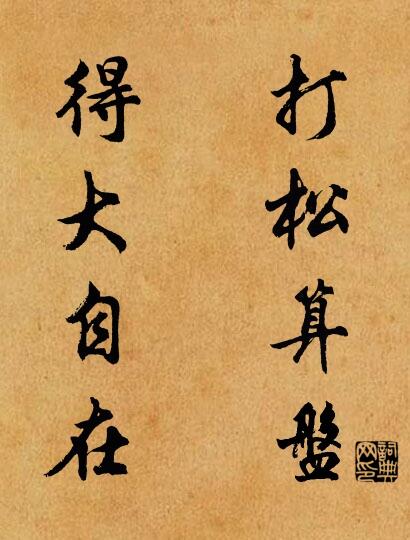 打松算盤
得大自在
詞典网印